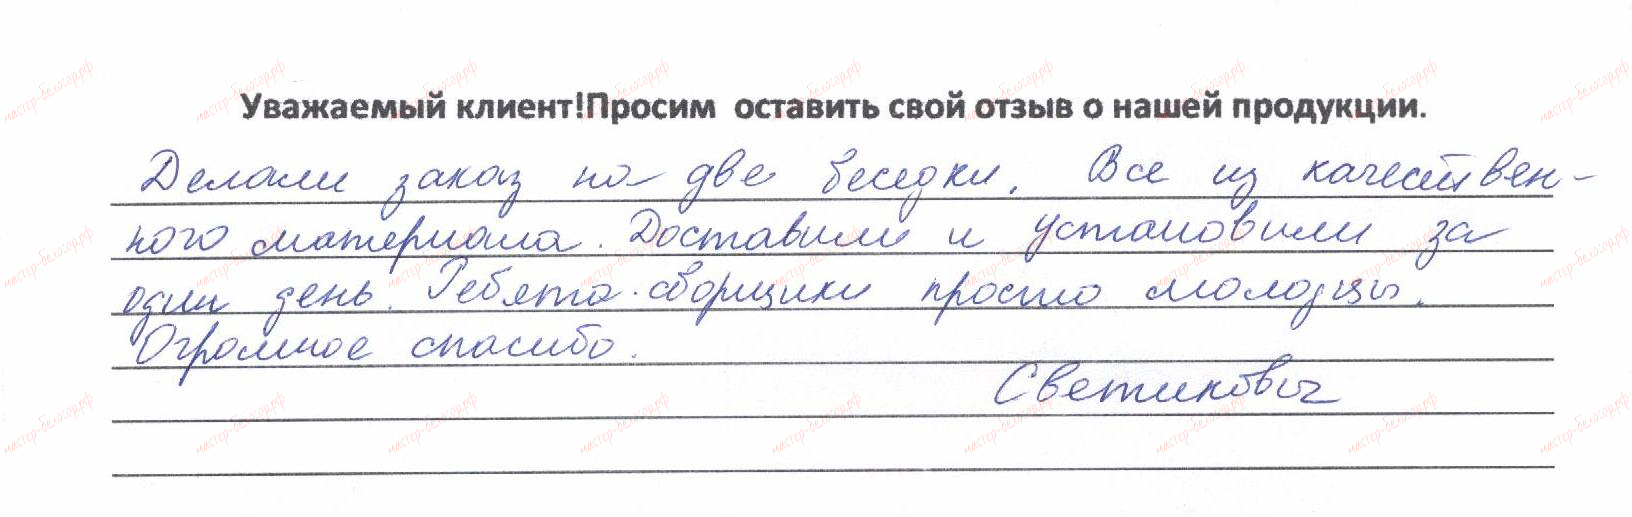 Уважаемый клиент!Просим оставить свой отзыв о нашей продукции.
Делали заказ на две беседки. Все из качествен-
ного материала. Доставили и установили за
один день. Ребята-сборщики просто молодцы.
Огромное спасибо.